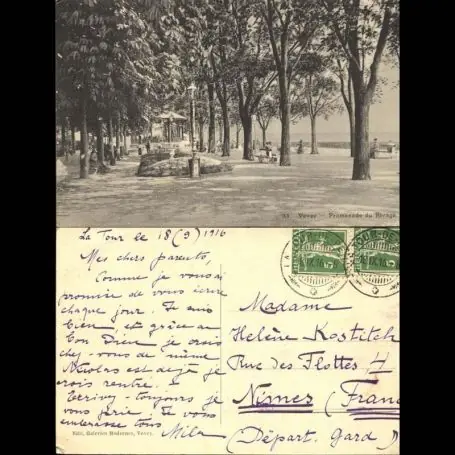 Vevey - Promenade du Rivage
La Tour le 18 (9) 1916
Mes chers parents,
Comme je vous ai
promise de vous écrire
chaque jour. Je suis
bien, et grâce au
bon Dieu je crois
chez-vous de même
Nicolas est déjà je
crois rentré.
Ecrivez-toujours je
vous prie. Je vous
embrasse tous
Mila
Edit. Galeries Modernes, Vevey.
Madame
Helène Kostitch
Rue des Flottes 4
Nimes (France)
(Départ. Gard)